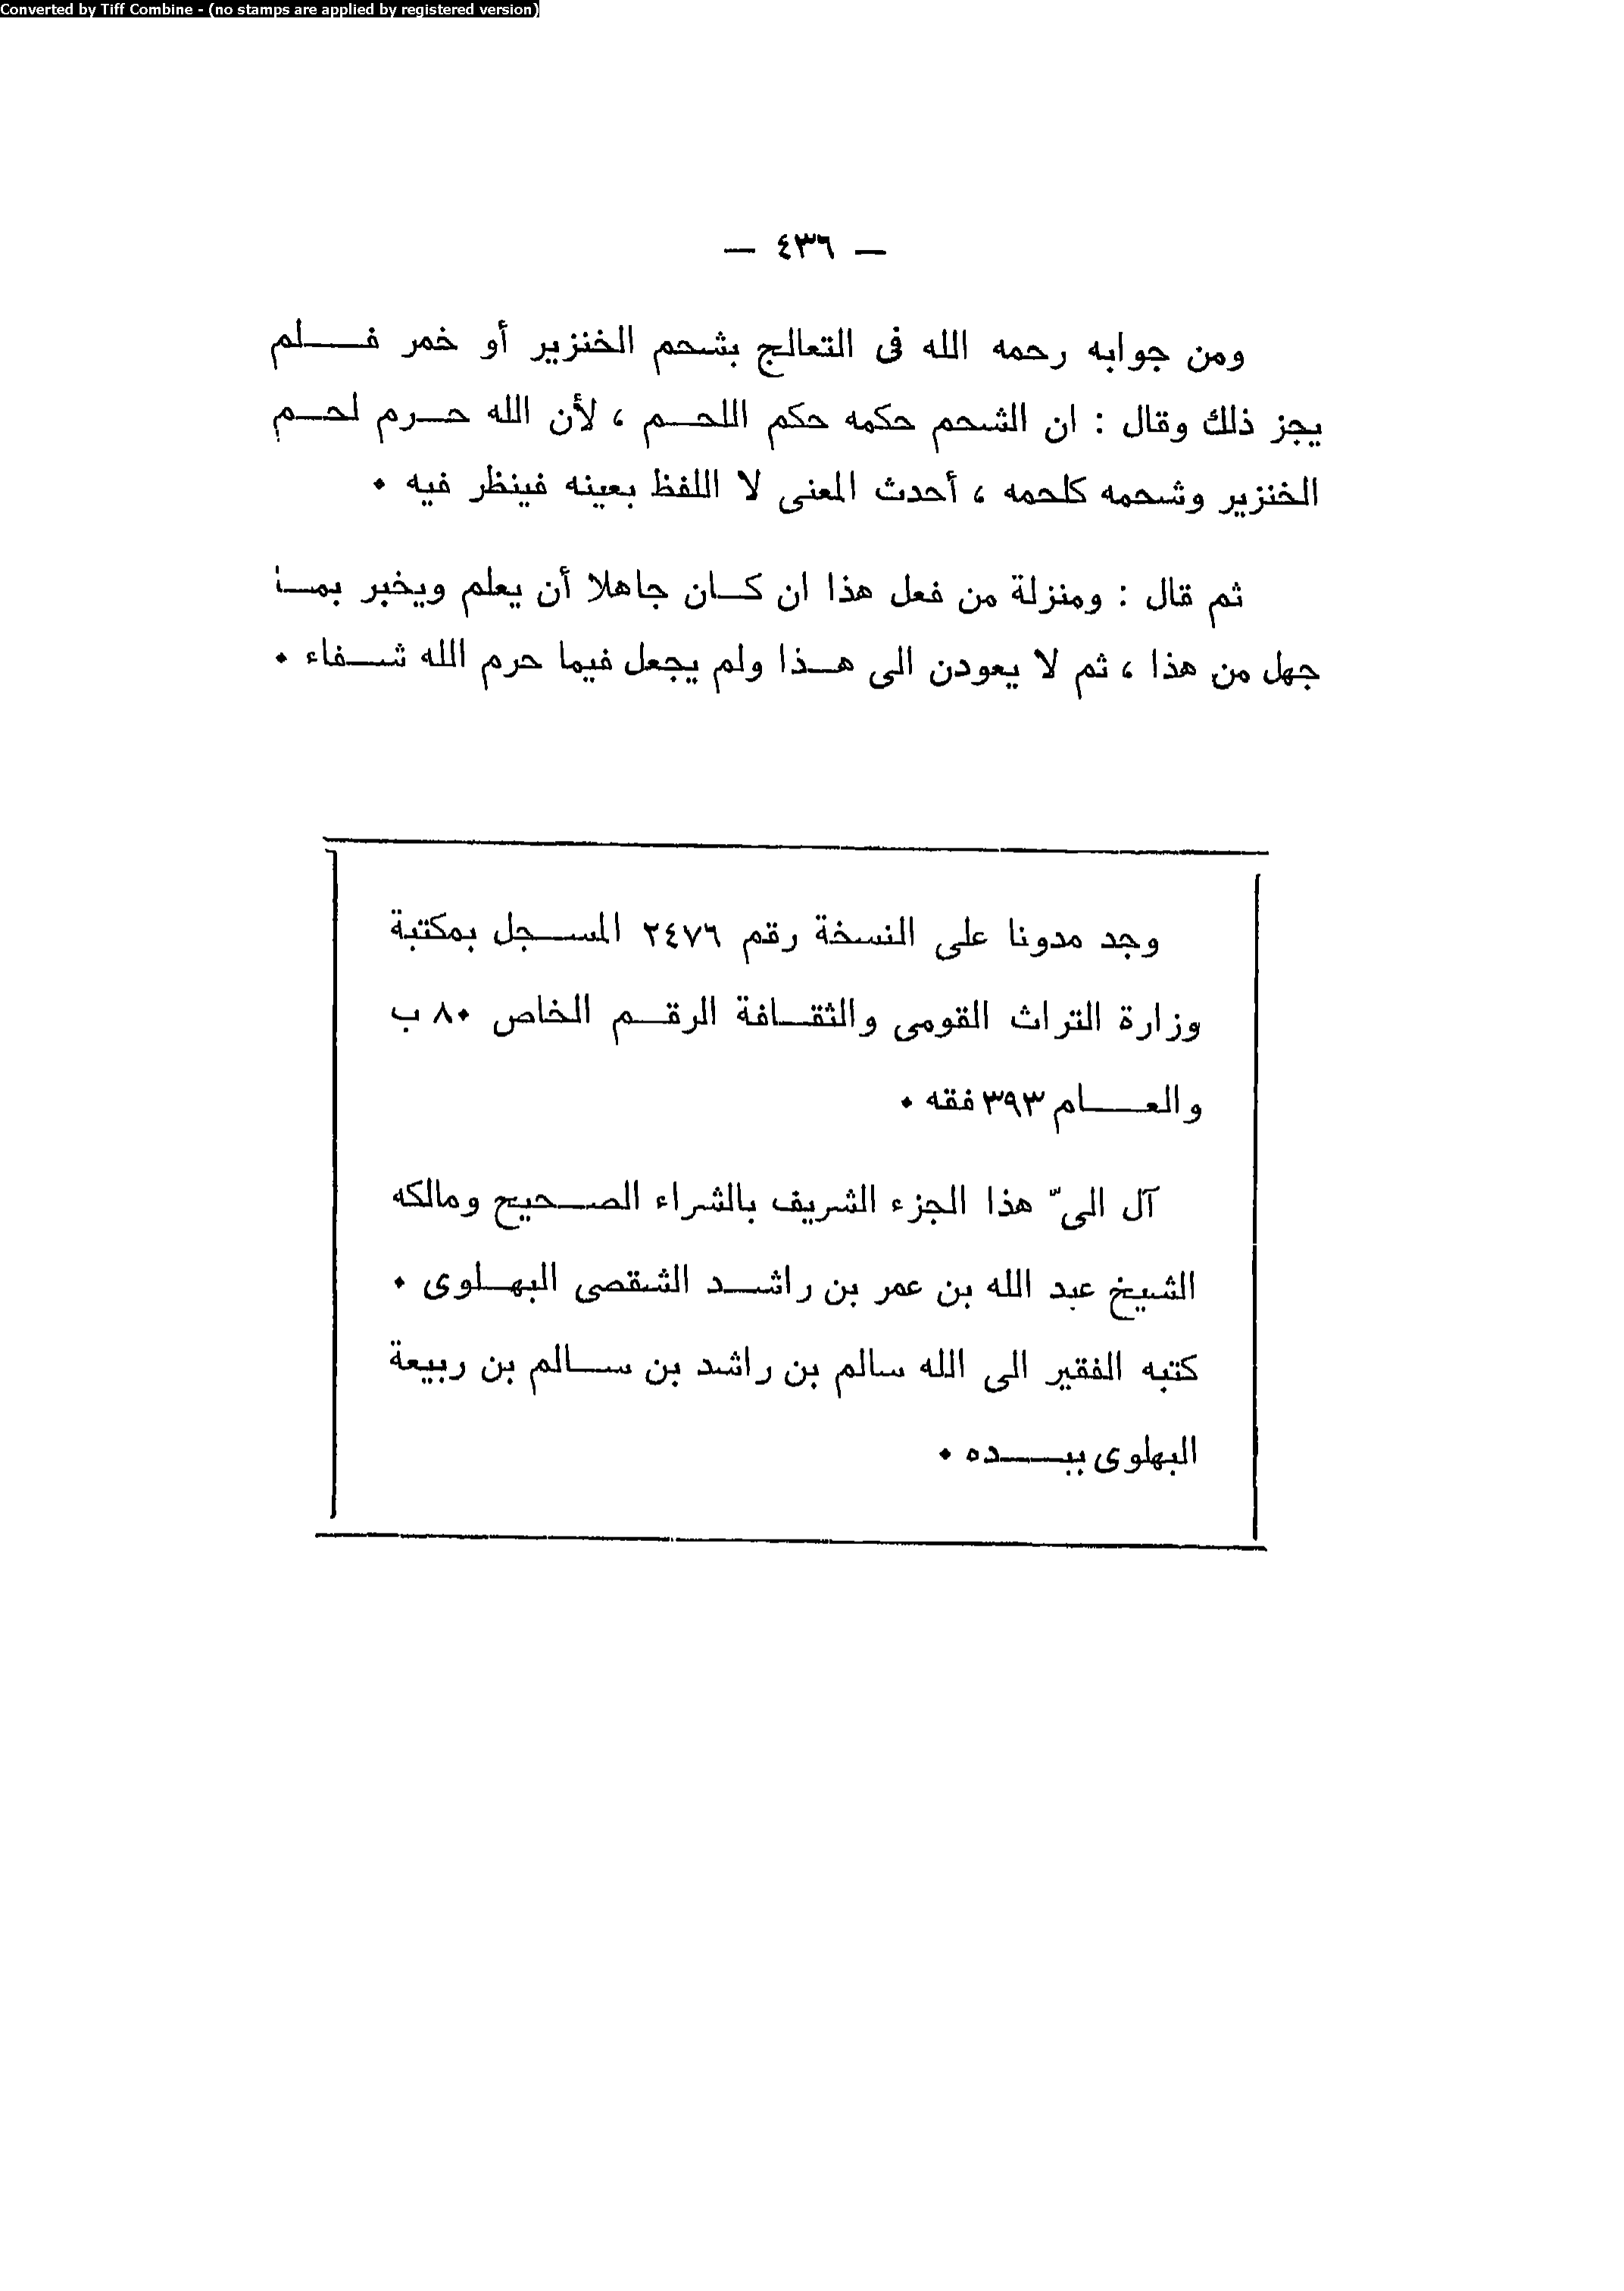 Converted by Tiff Combine - (no stamps are applied by registered version)
— ٤٣٦ —
ومن جوابه رحمه الله فى التعالج بشحم الخنزير أو خمر فلم
يجز ذلك وقال : ان الشحم حكمه حكم اللحم ، لأن الله حرم لحم
الخنزير وشحمه كلحمه ، أحدث المعنى لا اللفظ بعينه فينظر فيه ٠
ثم قال : ومنزلة من فعل هذا ان كان جاهلا أن يعلم ويخبر بما
جهل من هذا ، ثم لا يعودن الى هذا ولم يجعل فيما حرم الله شفاء ٠
وجد مدونا على النسخة رقم ٢٤٧٦ المسجل بمكتبة
وزارة التراث القومى والثقافة الرقم الخاص ٨٠ ب
والعام ٣٩٣ فقه ٠
آل الىّ هذا الجزء الشريف بالشراء الصحيح ومالكه
الشيخ عبد الله بن عمر بن راشد الشقصى البهلوى ٠
كتبه الفقير الى الله سالم بن راشد بن سالم بن ربيعة
البهلوى بيده ٠